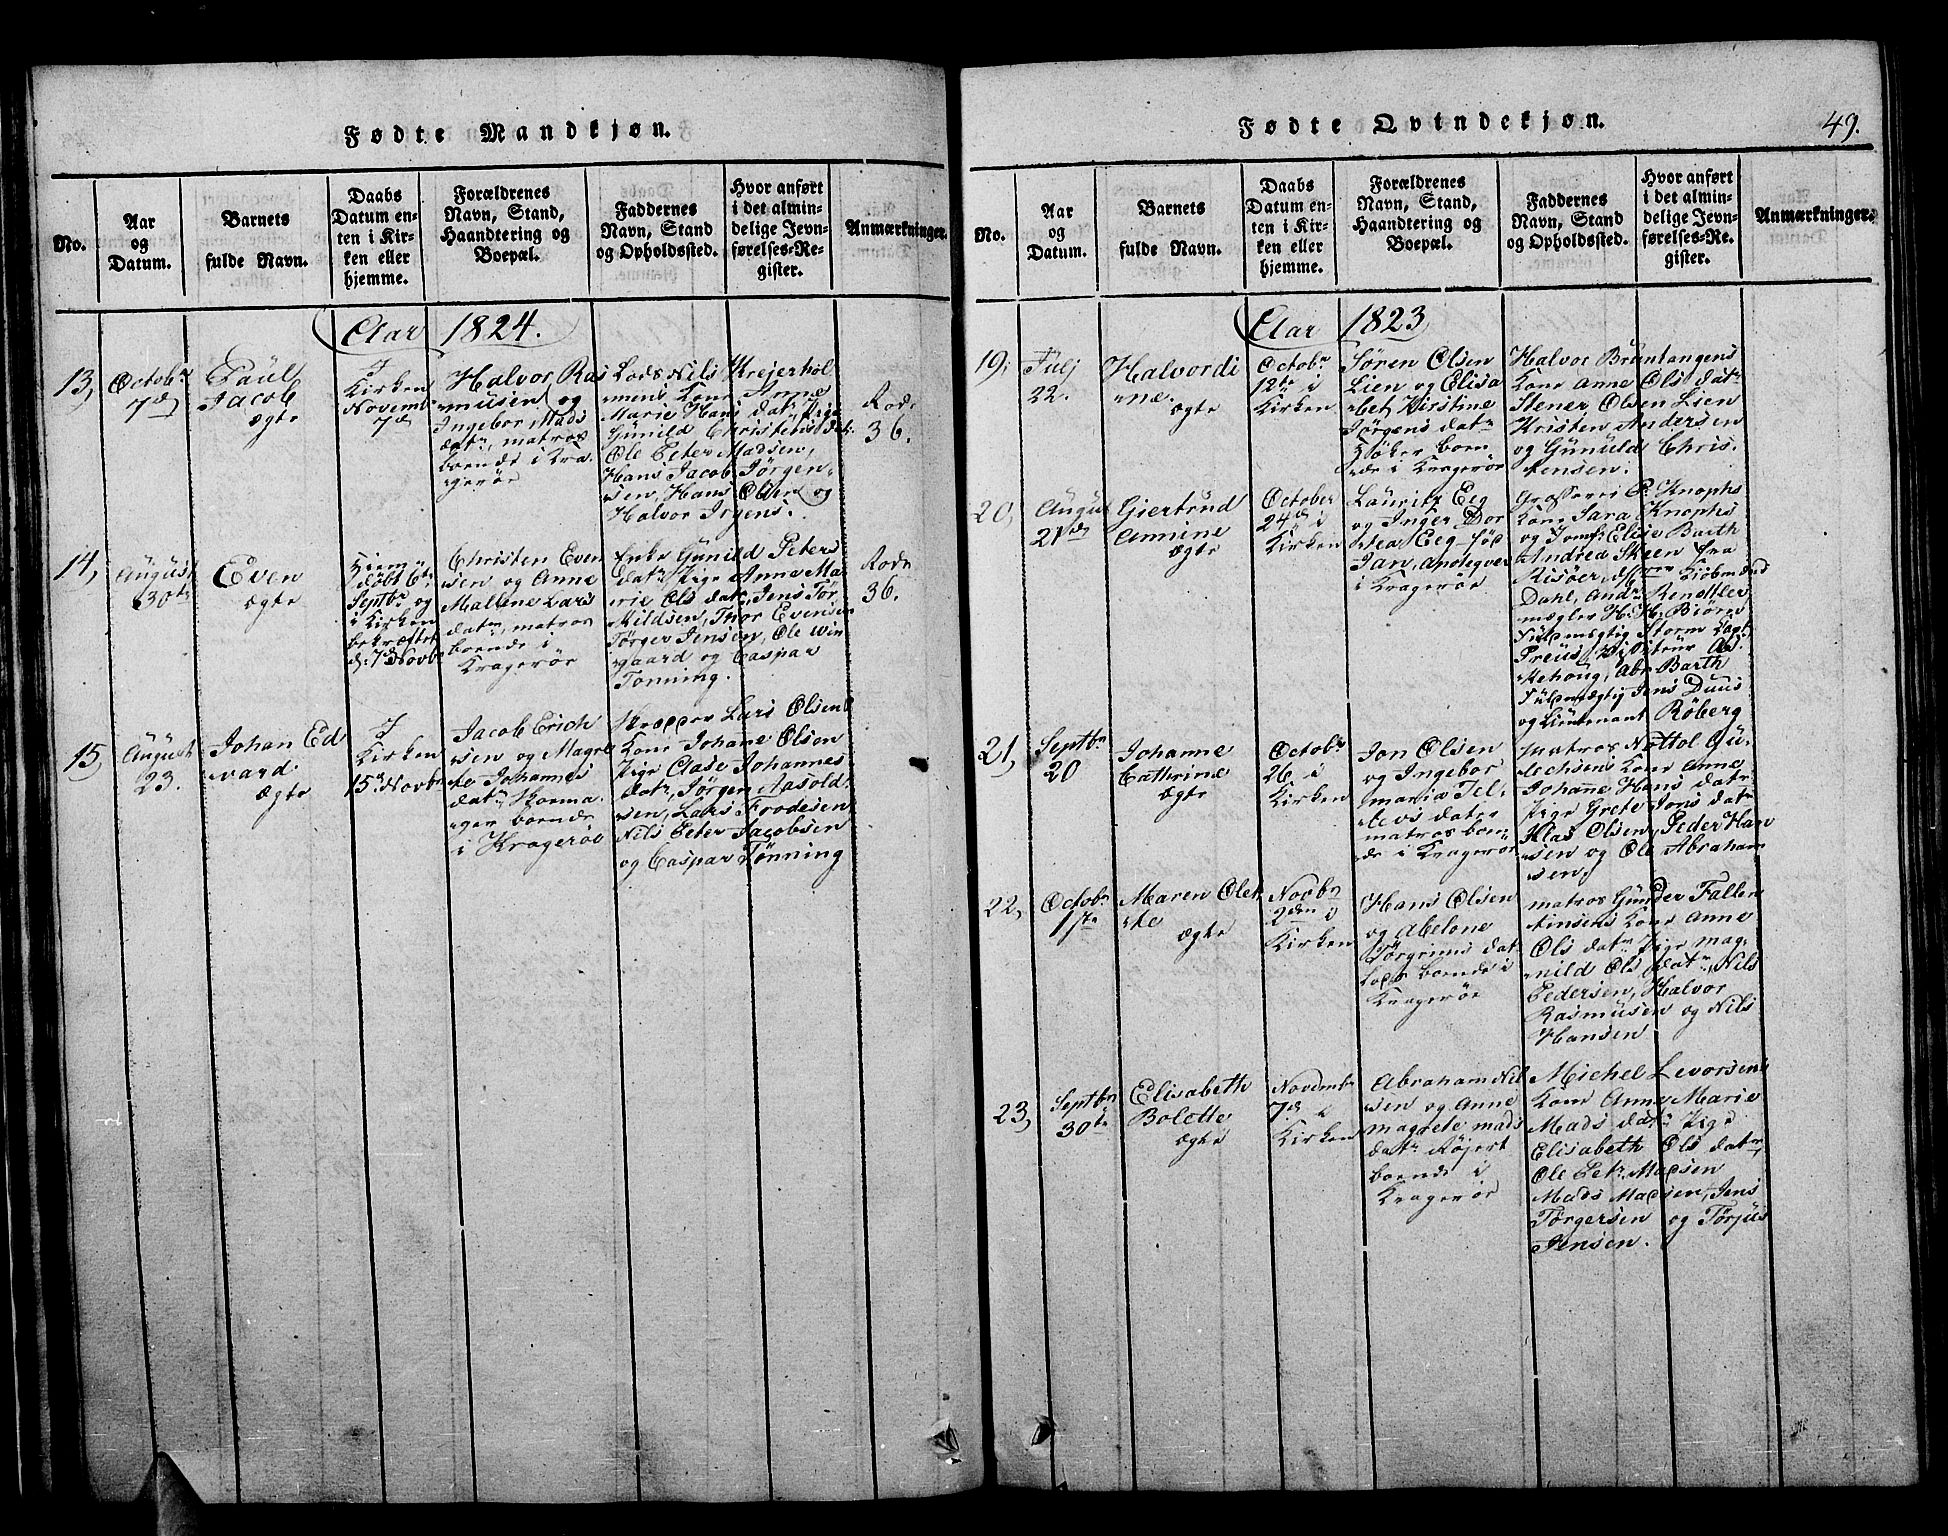 Fødte Mandkjøn.
No.
Aar
og
Datum.
Barnets
fulde Navn.
Daabs
Datum en-
ten i Kir-
ken eller
hjemme.
Forældrenes
Navn, Stand,
Haandtering og
Boepæl.
Faddernes
Navn, Stand
og Opholdssted.
Hvor anført
i det almin-
delige Jevn-
førelses-Re-
gister.
Anmærkninger.
Aar 1824.
13,
Octobr
7d
Paul
Jacob
ægte
I
Kirken
Novemb.
7d
Halvor Ras
musen og
Ingebor Mads
datr, matros
boende i Kra-
gerör
Lods Nils Krejerhol
mens Kone Anne
Marie Hans datr Pige
Günild Christens datr.
Ole Peter Madsen,
Hans Jacob Jörgen-
sen, Hans Olsen og
Halvor Irgens.
Rode
36.
14,
August
30te
Even
ægte
Hiem
döbt 6te
Septbr og
i Kirken
bekræftet
d. 7d Novbr
Christen Even
sen og Anne
Mallene Lars
datr, matros
boende i
Kragerör
Enke Günild Peters
datr Pige Anne Ma
rie Ols datr, Jens Tor
kildsen, Thor Evensen
Törger Jensen, Ole Win
gaard og Caspar
Tonning.
Rode
36.
15,
August
23.
Johan Ed
vard
ægte
I
Kirken
15d Novbr
Jacob Erich
sen og Magre
te Johannes
datr Skoma
ger boende
i Krageröe
Lars Olsens
Kone Johanne Olsen
Pige Clase Johannes
datr, Jörgen Aasold
sen, Lars Frodesen
Nils Peter Jacobsen
og Caspar Tönning
Fødte Qvindekjøn.
49.
No.
Aar
og
Datum.
Barnets
fulde Navn.
Daabs
Datum en-
ten i Kir-
ken eller
hjemme.
Forældrenes
Navn, Stand,
Haandtering og
Boepæl.
Faddernes
Navn, Stand
og Opholdssted.
Hvor anført
i det almin-
delige Jevn-
førelses-Re-
gister.
Anmærkninger.
Aar 1823
19,
Julj
22.
Halvordi
ne.
ægte
Octobr
12te i
Kirken
Sören Olsen
Lien og Elisa
bet Kirstine
Jörgens datr
Höker boen
de i Kragerör
Halvor Bräntangens
Kone Anne Ols datr
Stener Olsen Lien
Kristen Andersen
og Günuld Chris
tensen.
20,
August
21de
Giertrud
Annine
ægte
October
24de i
Kirken
Lauritz Eeg
og Inger Dor
tea Eeg föd
Jan, Apoteqver
i Kragerör
Grosserer P. Knophs
Kone Sara Knophs
og Jomfr Elise Barth
Andrea Skeen fra
Risöer, Kiöbmænd
Dahl, Andr Rendtler
mægler H. H. Biörn
Fülmægtig Storm Capt
Preus,
Abr Barth
Fülmægtig Jens Duus
og Lieutenant Röberg
21,
Septbr
20
Johanne
Cathrine
ægte
Octobr
26 i
Kirken
Jon Olsen
og Ingebor
maria Tel-
levs dater
matros boen
de i Kragerör
matros Nottol Gü-
lechsens Kone Anne
Johanne Hans datr
Pige Grete Jons datr
Klas Olsen, Peder Han
sen og Ole Abraham
sen.
22,
Octobr
17te
Maren Olet
te
ægte
Novbr
2den i
Kirken
Hans Olsen
og Abelone
Jörgens dat
Lods boende i
Kragerör
matros Günder Fallen
tinsens Kone Anne
Ols datr Pige mag-
nild Ols datr, Nils
Pedersen, Halvor
Rasmusen og Nils
Hansen
23,
Septbr
30te
Elisabeth
Bolette
ægte
Novembr
7de i
Kirken
Abraham Nil
sen og Anne
magrete mads
datr Röjert
boende i
Kragerör
Michel Levorsens
Kone Anne Marie
Mads datr Pige
Elisabeth Ols datr
Ole Petr Madsen
Mads Madsen, Jens
Törgersen og Törjus
Jensen.